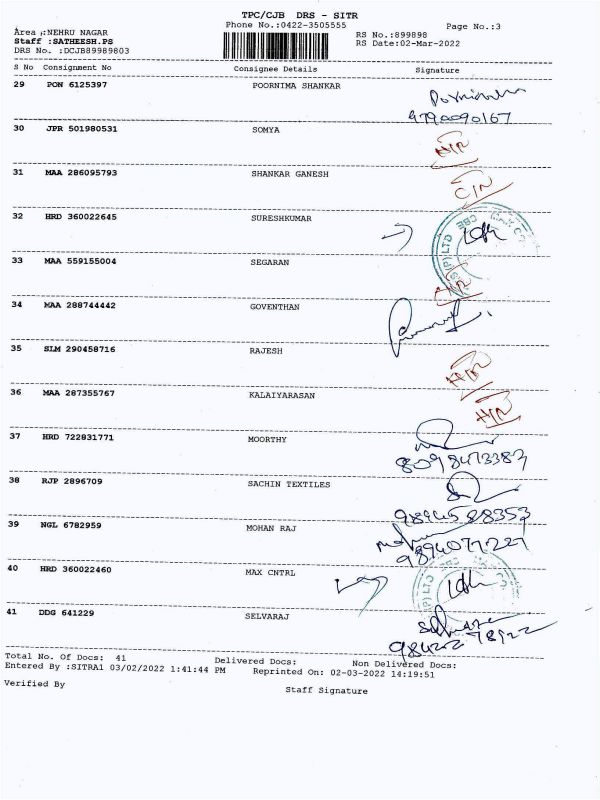 TPC/CJB DRS - SITR
Phone No.:0422-3505555
Page No.:3
Area :NEHRU NAGAR
RS No.:899898
Staff :SATHEESH.PS
RS Date:02-Mar-2022
DRS No. :DCJB89989803
S No Consignment No Consignee Details Signature
29 PON 6125397 POORNIMA SHANKAR
9790090167
30 JPR 501980531 SOMYA
31 MAA 286095793 SHANKAR GANESH
32 HRD 360022645 SURESHKUMAR
(P) LTD CBE
33 MAA 559155004 SEGARAN
34 MAA 288744442 GOVENTHAN
35 SLM 290458716 RAJESH
36 MAA 287355767 KALAIYARASAN
37 HRD 722831771 MOORTHY
8098473383
38 RJP 2896709 SACHIN TEXTILES
9894588353
39 NGL 6782959 MOHAN RAJ
9894077227
40 HRD 360022460 MAX CNTRL
(P) LTD CBE
41 DDG 641229 SELVARAJ
Total No. Of Docs: 41 Delivered Docs: Non Delivered Docs:
Entered By :SITRA1 03/02/2022 1:41:44 PM Reprinted On: 02-03-2022 14:19:51
Verified By Staff Signature